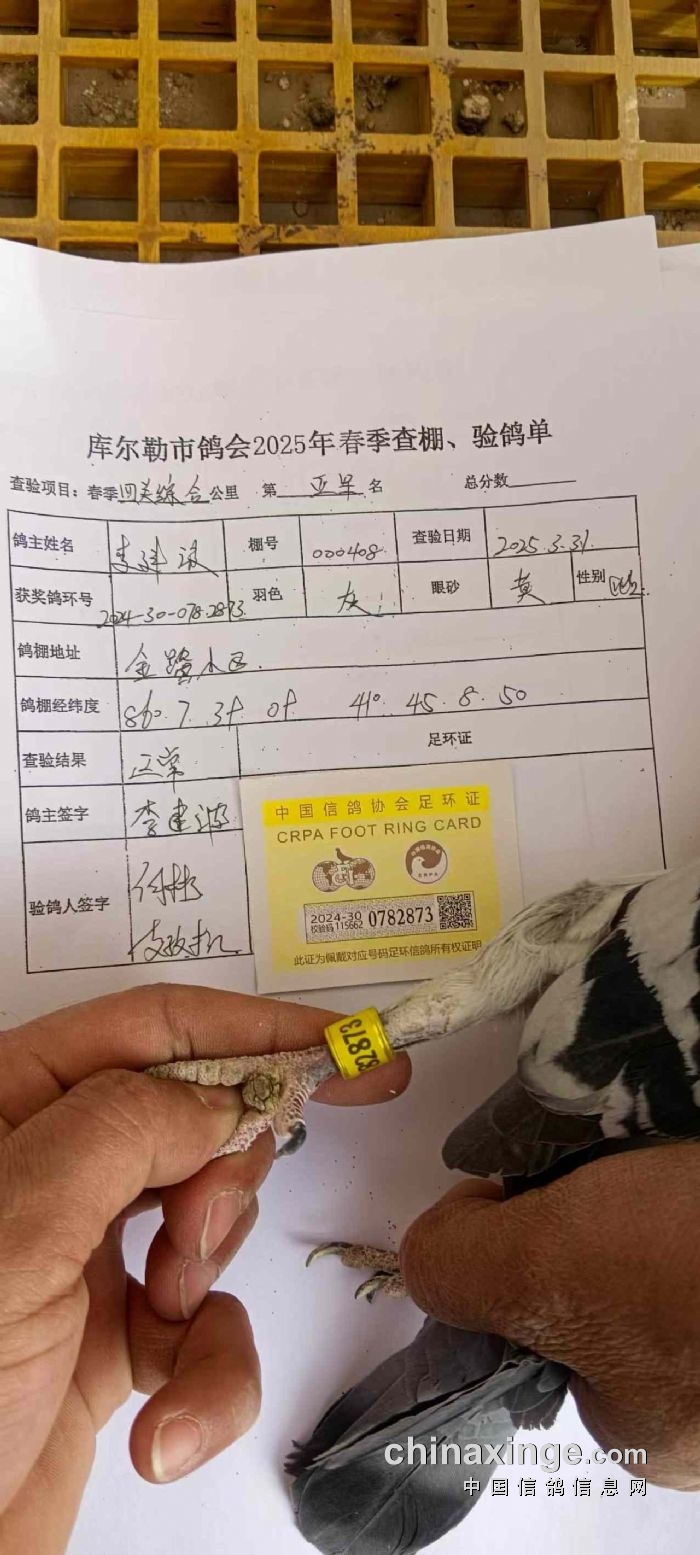 库尔勒市鸽会2025年春季查棚、验鸽单
查验项目：春季四关综合公里 第 亚军 名 总分数
鸽主姓名 李建 棚号 000408 查验日期 2025.3.31.
获奖鸽环号 2024-30-0782873 羽色 灰 眼砂 黄 性别
鸽棚地址 金 小区.
鸽棚经纬度 41 45 8 50
查验结果 正常 足环证
鸽主签字 李建
验鸽人签字
中国信鸽协会足环证
CRPA FOOT RING CARD
2024-30 0782873
校验码 115662
此证为佩戴对应号码足环信鸽所有权证明
82873
chinaxinge.com
中国信鸽信息网